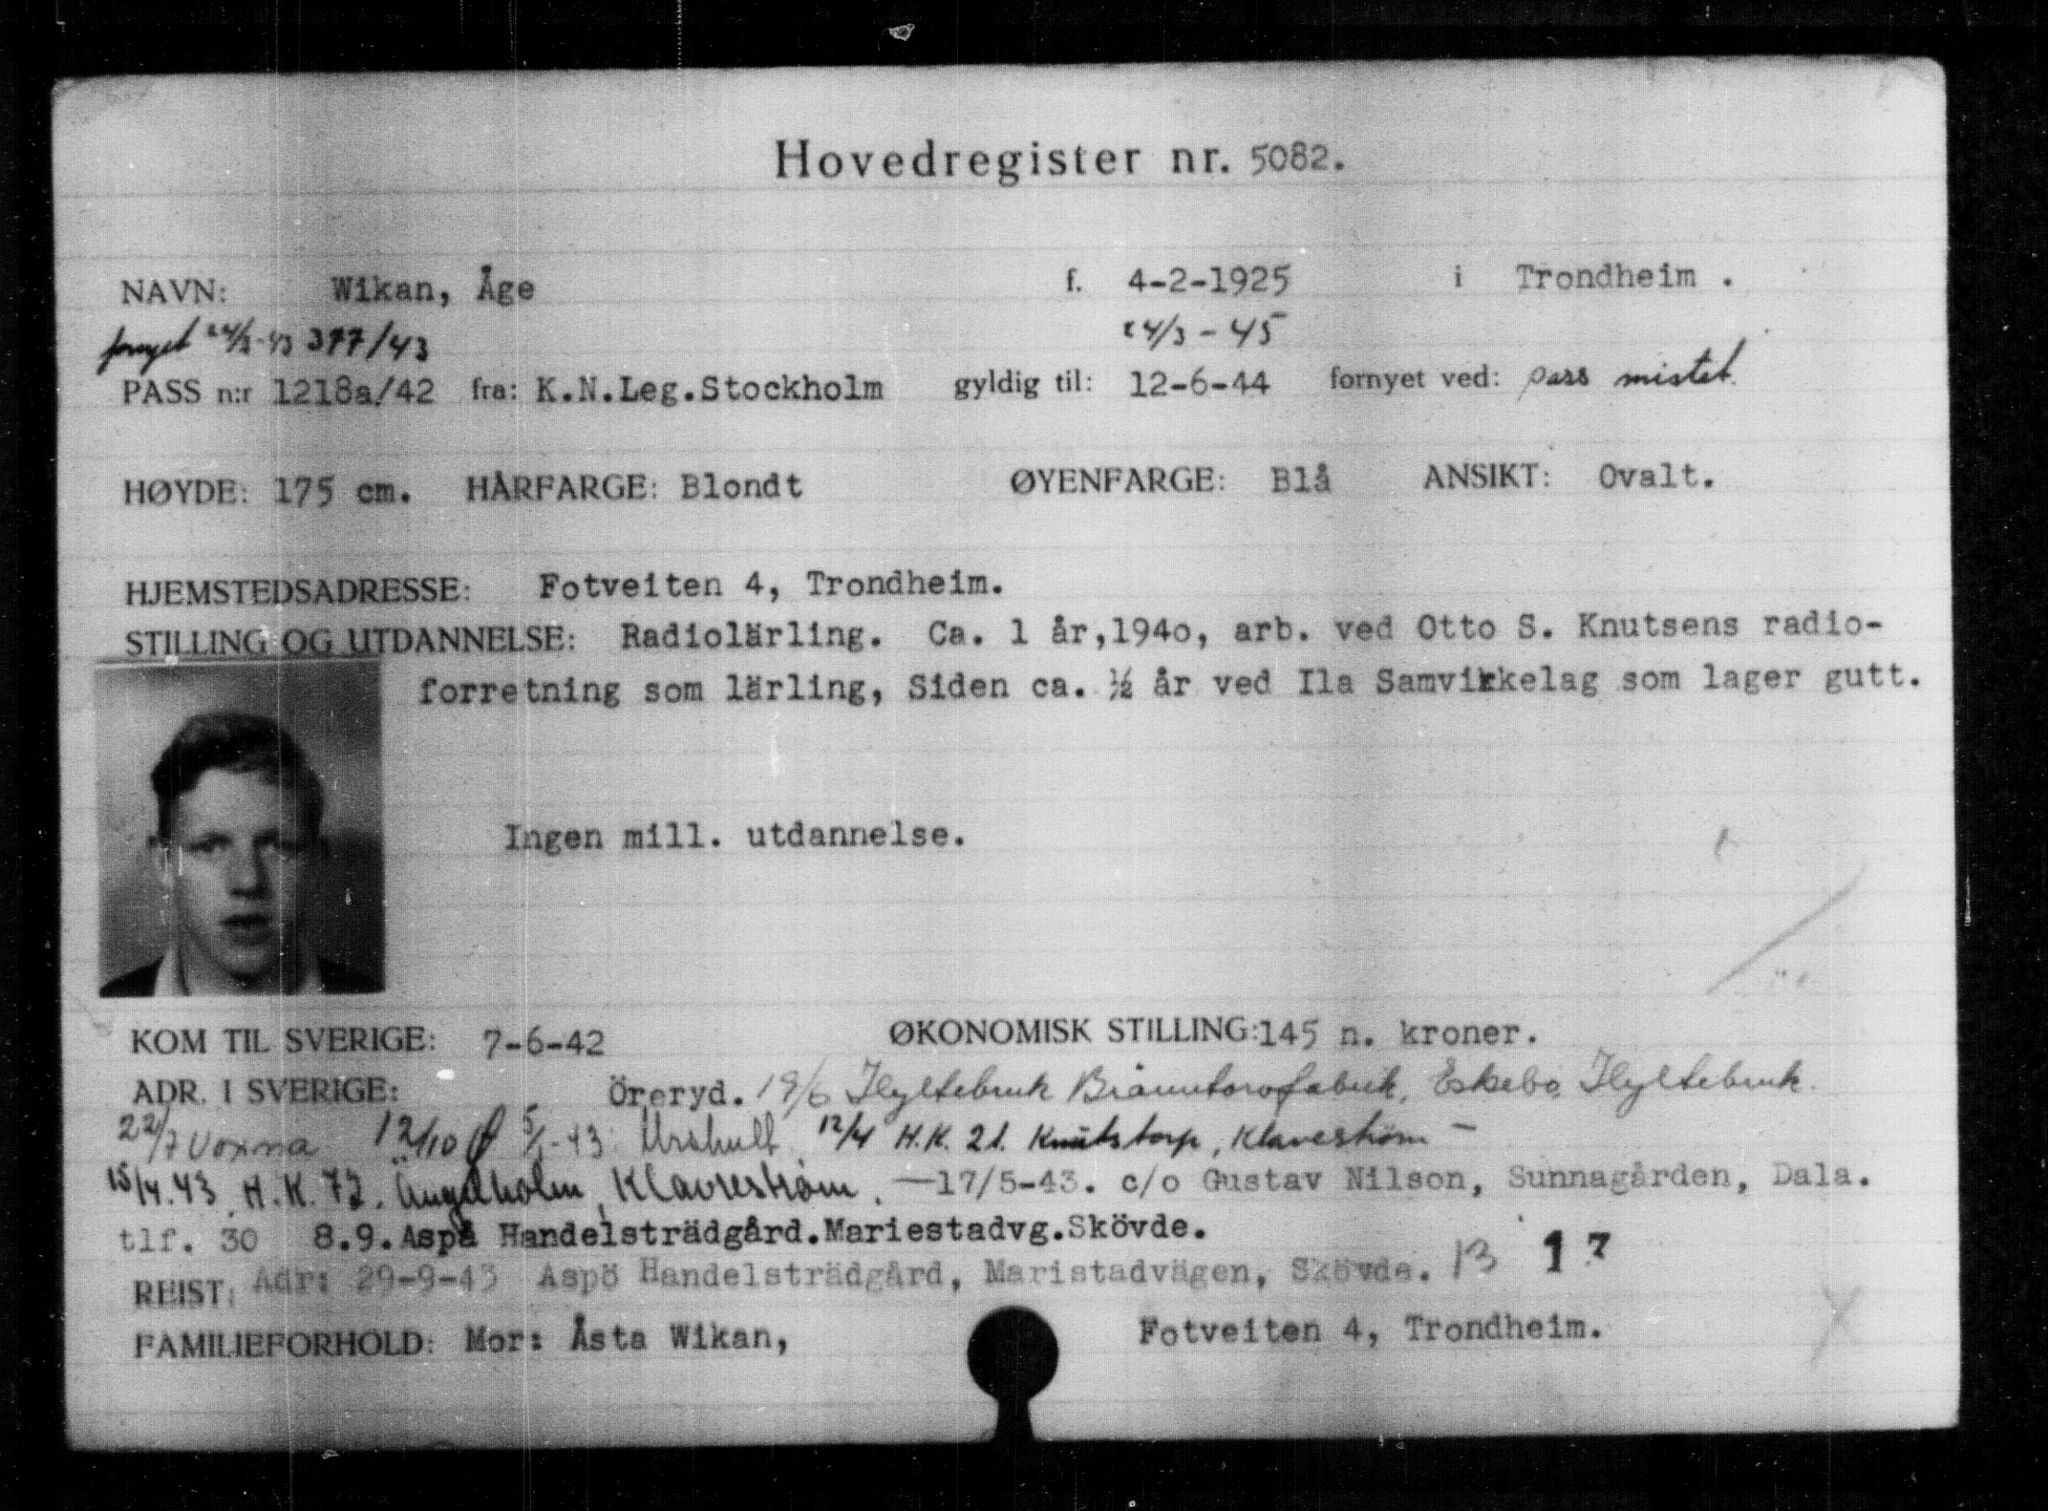 Hovedregister nr. 5082.
NAVN: Wikan, Åge f. 4-2-1925 i Trondheim .
fornyet 24/3-43 377/43 24/3 - 45
PASS n:r 1218a/42 fra: K.N.Leg.Stockholm gyldig til: 12-6-44 fornyet ved: pass mistet.
HØYDE: 175 cm. HÅRFARGE: Blondt ØYENFARGE: Blå ANSIKT: Ovalt.
HJEMSTEDSADRESSE: Fotveiten 4, Trondheim.
STILLING OG UTDANNELSE: Radiolärling. Ca. 1 år,194o, arb. ved Otto S. Knutsens radio-
forretning som lärling, Siden ca. ½ år ved Ila Samvirkelag som lager gutt.
Ingen mill. utdannelse.
KOM TIL SVERIGE: 7-6-42 ØKONOMISK STILLING: 145 n. kroner.
ADR. I SVERIGE: Öreryd. 19/6 Hyltebruk Bränntorvfabrik, Eskebo, Hyltebruk.
22/7 Voxna 12/10 Ø 5/1-43 Urshult 12/4 H.K. 21. Knutstorp, Klaveström -
15/4.43. H.K. 72. Ängaholm, Klavreström. —17/5-43. c/o Gustav Nilson, Sunnagården, Dala.
tlf. 30 8.9. Aspå Handelsträdgård.Mariestadvg.Skövde.
REIST: Adr: 29-9-43 Aspö Handelsträdgård, Maristadvägen, Skövde. 13 17
FAMILIEFORHOLD: Mor: Åsta Wikan, Fotveiten 4, Trondheim.